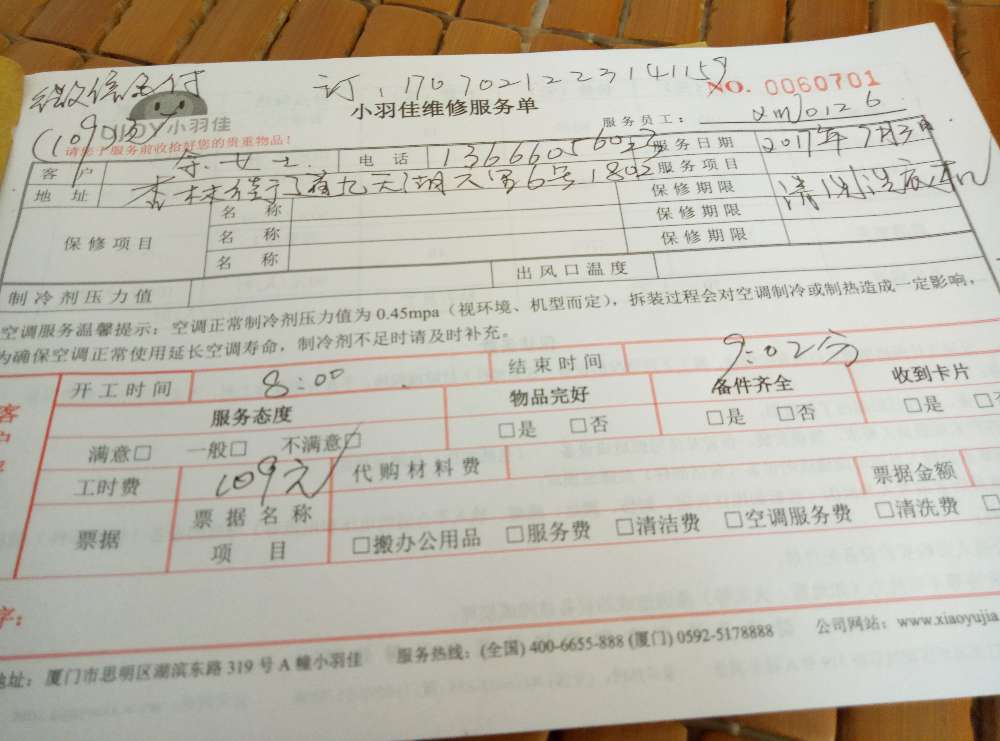 微信支付 订:1707021223141159
(109元)
小羽佳
小羽佳维修服务单
NO. 0060701
请您于服务前收拾好您的贵重物品!
服务员工: xm0126
客户 女士 电话 服务日期 2017年7月3日
地址 杏林街道九天湖 6号1802 服务项目 清洗洗衣机
保修项目 名称 保修期限
名称 保修期限
名称 保修期限
制冷剂压力值 出风口温度
空调服务温馨提示:空调正常制冷剂压力值为 0.45mpa(视环境、机型而定),拆装过程会对空调制冷或制热造成一定影响,
为确保空调正常使用延长空调寿命,制冷剂不足时请及时补充。
开工时间 8:00 结束时间 9:02分
服务态度 物品完好 备件齐全 收到卡片
满意□ 一般□ 不满意□ □是 □否 □是 □否 □是 □否
工时费 109元 代购材料费 票据金额
票据 票据名称
项目 □搬办公用品 □服务费 □清洁费 □空调服务费 □清洗费
字:
地址:厦门市思明区湖滨东路 319 号 A 幢小羽佳 服务热线:(全国) 400-6655-888 (厦门) 0592-5178888 公司网站:www.xiaoyujia